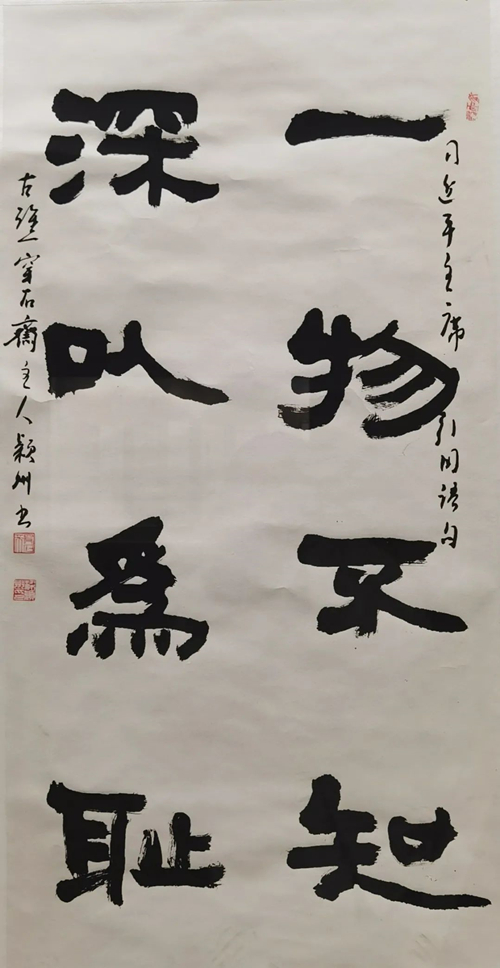 习近平主席引用语句
一物不知
深以爲耻
古 穿石齋主人颖州书